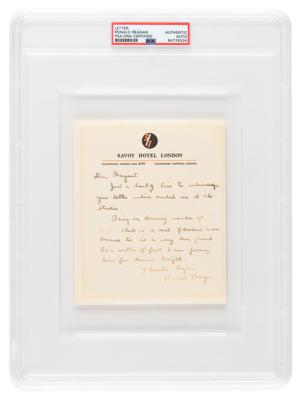 LETTER
RONALD REAGAN
PSA/DNA CERTIFIED
AUTHENTIC
AUTO
PSA
SAVOY HOTEL LONDON
Dear Margaret
Just a hasty line to acknowledge
your letter which reached me at the
studio.
Being an Honorary member of
club is a real pleasure
is a very dear friend
As a matter of fact I am joining
him for dinner tonight.
Thanks Again
Ronald Reagan